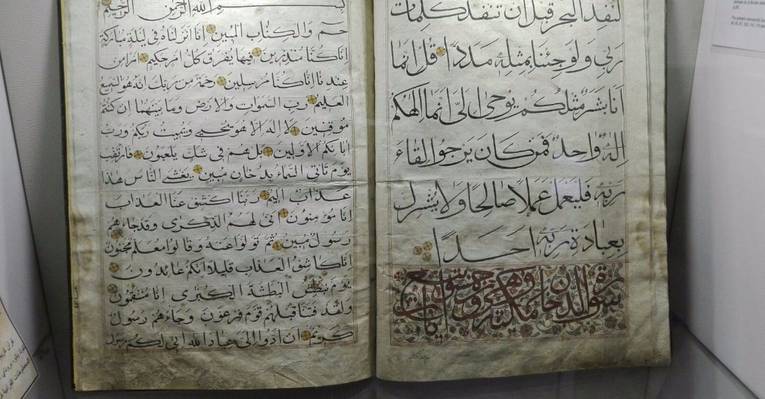 لنفد البحر قبل ان تنفد كلمات
ربي ولو جئنا بمثله مددا قل انما
انا بشر مثلكم يوحى الي انما الهكم
اله واحد فمن كان يرجوا لقاء
ربه فليعمل عملا صالحا ولا يشرك
بعبادة ربه احدا
سورة الدخان مكية وهي آيات
بسم الله الرحمن الرحيم
حم والكتاب المبين انا انزلناه في ليلة مباركة
انا كنا منذرين فيها يفرق كل امر حكيم امرا من
عندنا انا كنا مرسلين رحمة من ربك انه هو السميع
العليم رب السموات والارض وما بينهما ان كنتم
موقنين لا اله الا هو يحيي ويميت ربكم ورب
ابائكم الاولين بل هم في شك يلعبون فارتقب
يوم تاتي السماء بدخان مبين يغشى الناس هذا
عذاب اليم ربنا اكشف عنا العذاب
انا مؤمنون انى لهم الذكرى وقد جاءهم
رسول مبين ثم تولوا عنه وقالوا معلم مجنون
انا كاشفوا العذاب قليلا انكم عائدون
يوم نبطش البطشة الكبرى انا منتقمون
ولقد فتنا قبلهم قوم فرعون وجاءهم رسول
كريم ان ادوا الي عباد الله اني لكم رسول